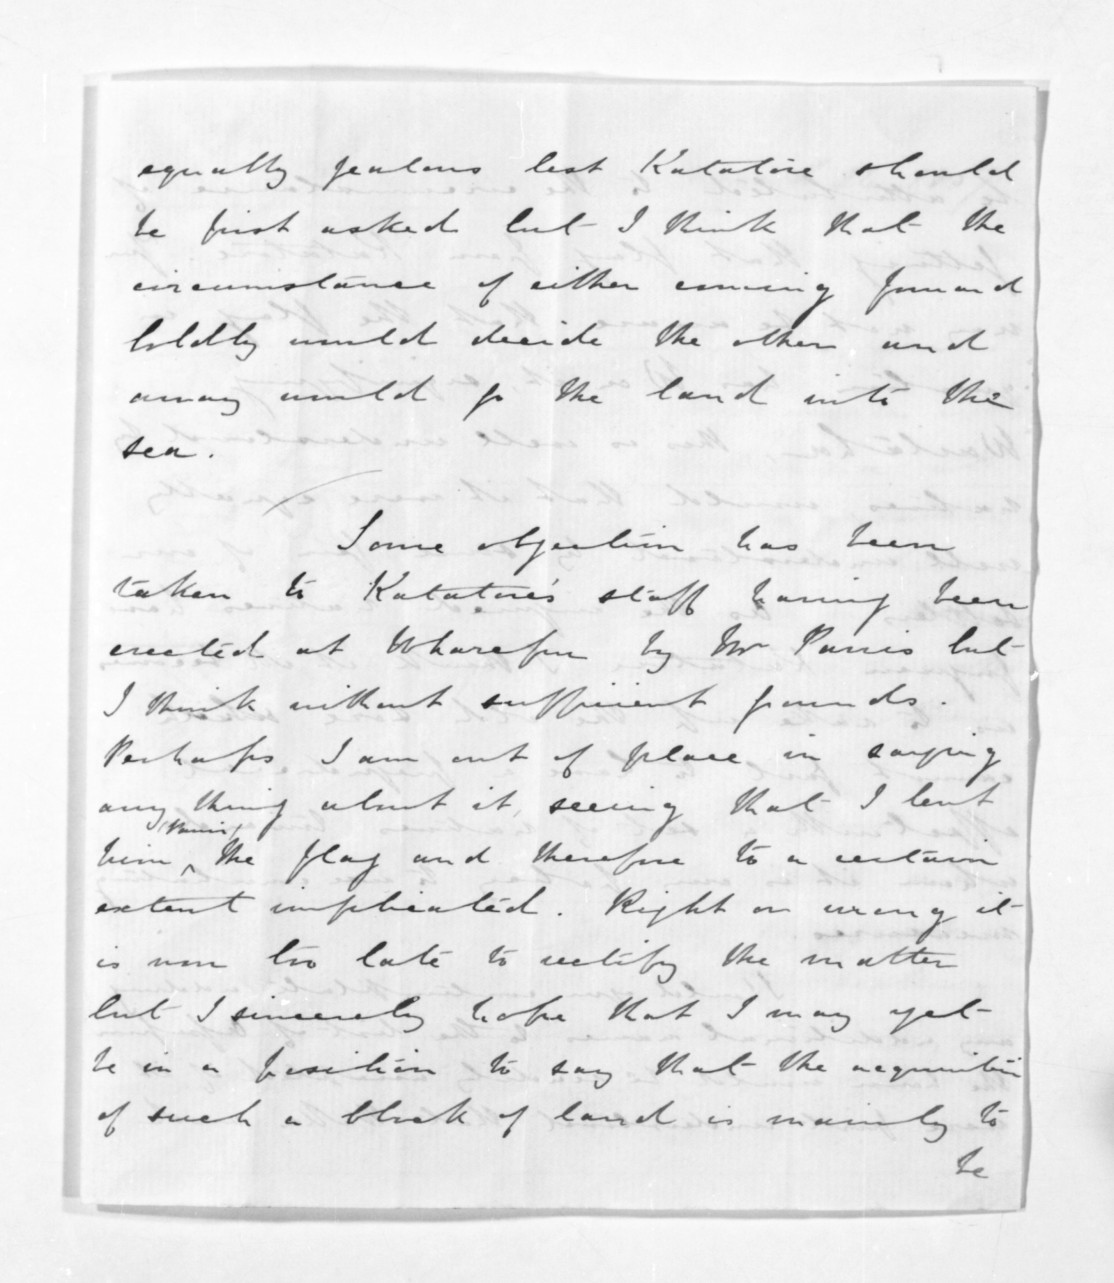 equally jealous lest Katatore should
be first asked but I think that the
circumstance of either coming forward
boldly would decide the other and
away would go the land into the
sea.
Some objection has been
taken to Katatore's staff having been
erected at Wharepu by Mr Parris but
I think without sufficient grounds.
Perhaps I am out of place in saying
any thing about it, seeing that I lent
him the flag and therefore to a certain
extent implicated. Right or wrong it
is now too late to rectify the matter
but I sincerely hope that I may yet
be in a position to say that the acquisition
of such a block of land is mainly to
be